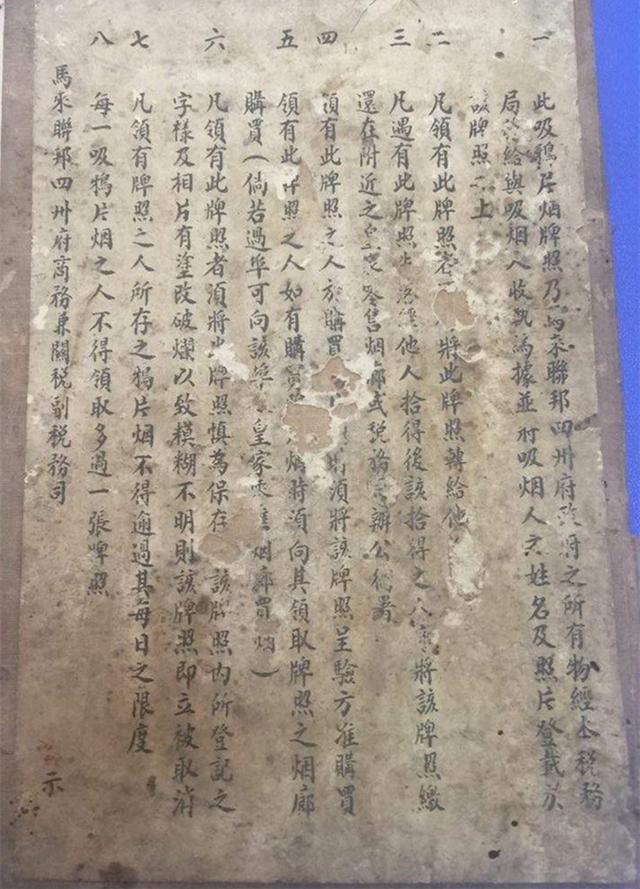 一 此吸鴉片烟牌照乃馬來聯邦四州府政府之所有物經本税務
局發給與吸烟人收執為據並將吸烟人之姓名及照片登載於
該牌照之上
二 凡領有此牌照者 將此牌照轉給他
三 凡遇有此牌照 他人拾得後該拾得之人 將該牌照繳
還在附近之皇家 售烟廊或税務 辦公衙署
四 領有此牌照之人於購買 時須將該牌照呈驗方准購買
五 領有此牌照之人如有購買 烟時須向其領取牌照之烟廊
購買(倘若過埠可向該埠 皇家 烟廊買烟)
六 凡領有此牌照者須將此牌照慎為保存 該牌照内所登記之
字樣及相片有塗改破爛以致模糊不明則該牌照即立被取消
七 凡領有牌照之人所存之鴉片烟不得逾過其每日之限度
八 每一吸鴉片烟之人不得領取多過一張牌照
馬來聯邦四州府商務兼關税副税務司 示